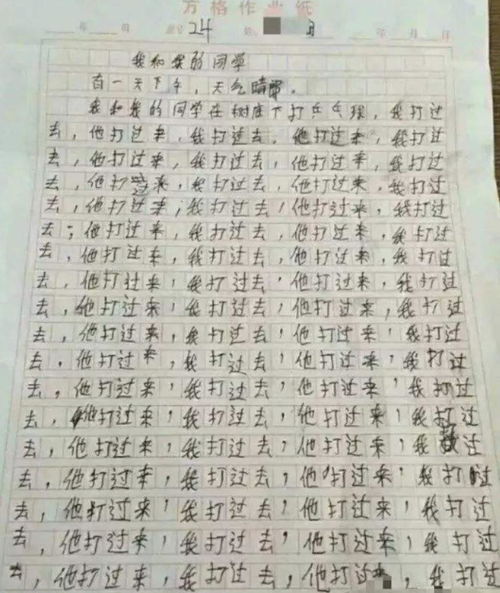 方格作业纸
年 月 24 第 年 月 日
我和我的同学
百一天下午，天气晴
我和我的同学在树底下打乒乓球，我打过
去，他打过来，我打过去，他打过来，我打过
去，他打过来，我打过去，他打过来，我打过
去，他打过来，我打过去，他打过来，我打过
去，他打过来，我打过去，他打过来，我打过
去，他打过来，我打过去，他打过来，我打过
去，他打过来，我打过去，他打过来，我打过
去，他打过来，我打过去，他打过来，我打过
去，他打过来，我打过去，他打过来，我打过
去，他打过来，我打过去，他打过来，我打过
去，他打过来，我打过去，他打过来，我打过
去，他打过来，我打过去，他打过来，我打过
去，他打过来，我打过去，他打过来，我打过
去，他打过来，我打过去，他打过来，我过
去，他打过来，我打过去，他打过来，我打过
去，他打过来，我打过去，他打过来，我打过
去，他打过来，我打过去，他打过来，我打过
去，他打过来，我打过去，他打过来，我打过